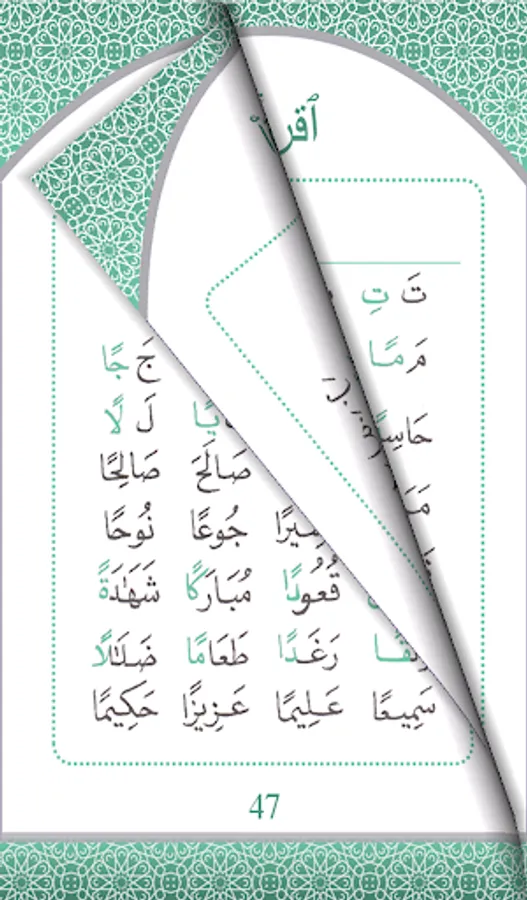 ٱقرأ
تَ تِ
مَ مًا جَ جًا
يًا لَ لًا
صَالَحَ صَالِحًا
جُوعًا نُوحًا
قُعُودًا مُبَارَكًا شَهَٰدَةً
رَغَدًا طَعَامًا ضَلَٰلًا
سَمِيعًا عَلِيمًا عَزِيزًا حَكِيمًا
47